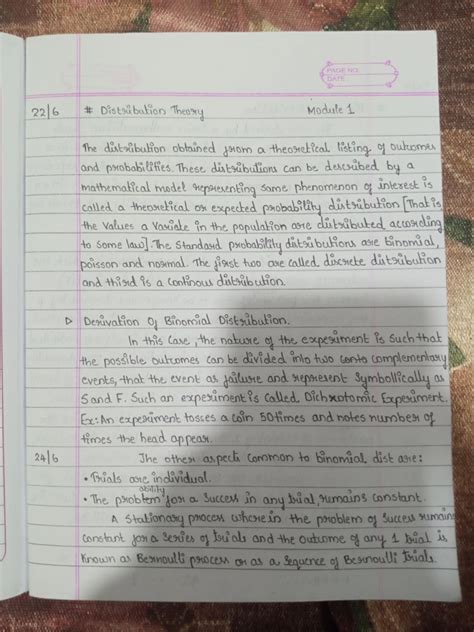 PAGE NO.
DATE
22/6 # Distribution Theory Module 1
The distribution obtained from a theoretical listing of outcomes
and probabilities. These distributions can be described by a
mathematical model representing some phenomenon of interest is
called a theoretical or expected probability distribution [That is
the values a variate in the population are distributed according
to some law]. The standard probability distributions are binomial,
poisson and normal. The first two are called discrete distribution
and third is a continous distribution.
▷ Derivation Of Binomial Distribution.
In this case, the nature of the experiment is such that
the possible outcomes can be divided into two complementary
events, that the event as failure and represent symbollically as
S and F. Such an experiment is called Dichrotomic Experiment.
Ex: An experiment tosses a coin 50 times and notes number of
times the head appear.
24/6 The other aspects common to binomial dist are:
• Trials are individual.
ability
• The problem for a success in any trial, remains constant.
A Stationary process wherein the problem of success remains
constant for a series of trials and the outcome of any 1 trial is
known as Bernoulli process or as a sequence of Bernoulli trials.